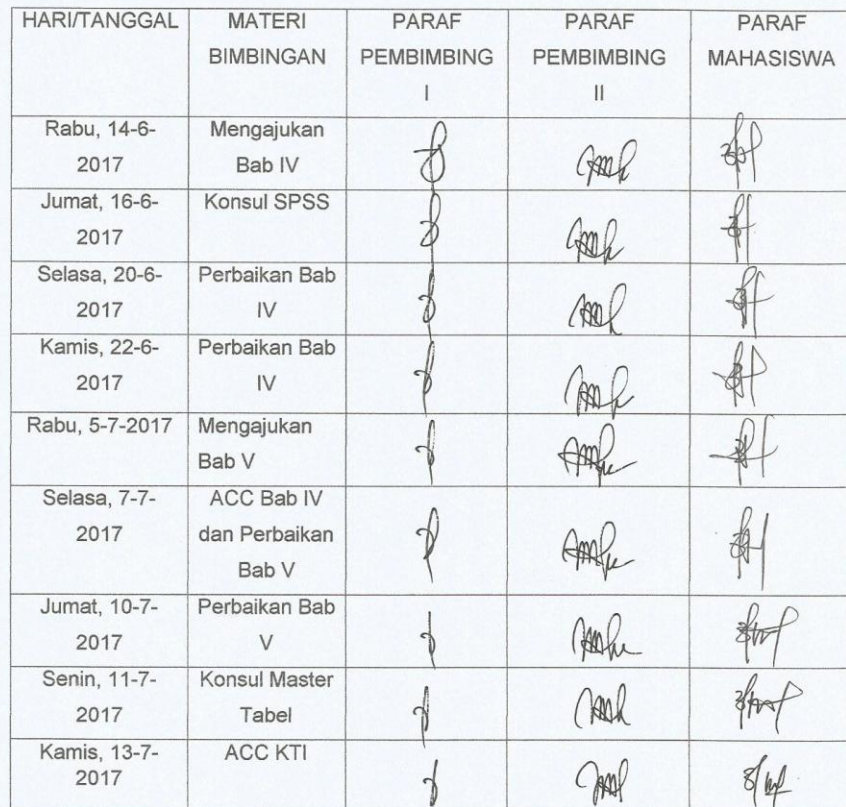 HARI/TANGGAL
MATERI
BIMBINGAN
PARAF
PEMBIMBING
I
PARAF
PEMBIMBING
II
PARAF
MAHASISWA
Rabu, 14-6-
2017
Mengajukan
Bab IV
Jumat, 16-6-
2017
Konsul SPSS
Selasa, 20-6-
2017
Perbaikan Bab
IV
Kamis, 22-6-
2017
Perbaikan Bab
IV
Rabu, 5-7-2017
Mengajukan
Bab V
Selasa, 7-7-
2017
ACC Bab IV
dan Perbaikan
Bab V
Jumat, 10-7-
2017
Perbaikan Bab
V
Senin, 11-7-
2017
Konsul Master
Tabel
Kamis, 13-7-
2017
ACC KTI